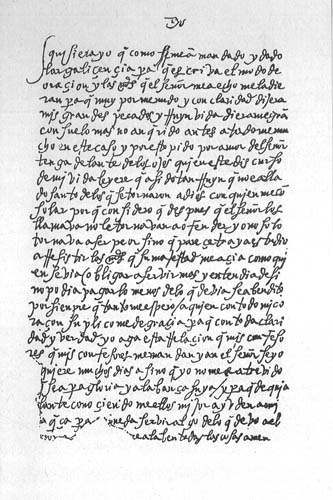 Jhs
quisiera yo q̃ como me an mandado y dado
larga liçençia pa q̃ escriva el modo de
oraçion y las mds q̃ el señor me a echo me la die
ran pa q̃ muy por menudo y con claridad dijera
mis grandes pecados y rruyn vida diera me gran
consuelo mas no an qrido antes atado me mu
cho en este caso y por esto pido por amor del señor
tenga delante de los ojos quien este discurso
de mi vida leyere q̃ a sido tan rruyn q̃ no e alla
do santo de los q̃ se tornaron a dios con quien me con
solar porq̃ considero q̃ despues q̃ el señor los
llamava no le tornavan a ofender yo no solo
tornava a ser peor sino q̃ pareçe traya estudio
a rresistir las mds q̃ su majestad me açia como qui
en se via obligar a servir mas y entendia de si
no podia pagar lo menos de lo q̃ devia sea bendito
por siempre q̃ tanto me espero a quien con todo mi co
raçon suplico me de graçia pa q̃ con toda clari
dad y verdad yo aga esta rrelaçion q̃ mis confeso
res me mandan y aun el señor se yo
lo quiere muchos dias a sino q̃ yo no me e atrevido
sea pa gloria y alabança suya y pa q̃ de aqui
adelante conoçiendo me ellos mijor ayuden a mi
pueda servir algo de lo q̃ devo al
alaben todas las cosas amen